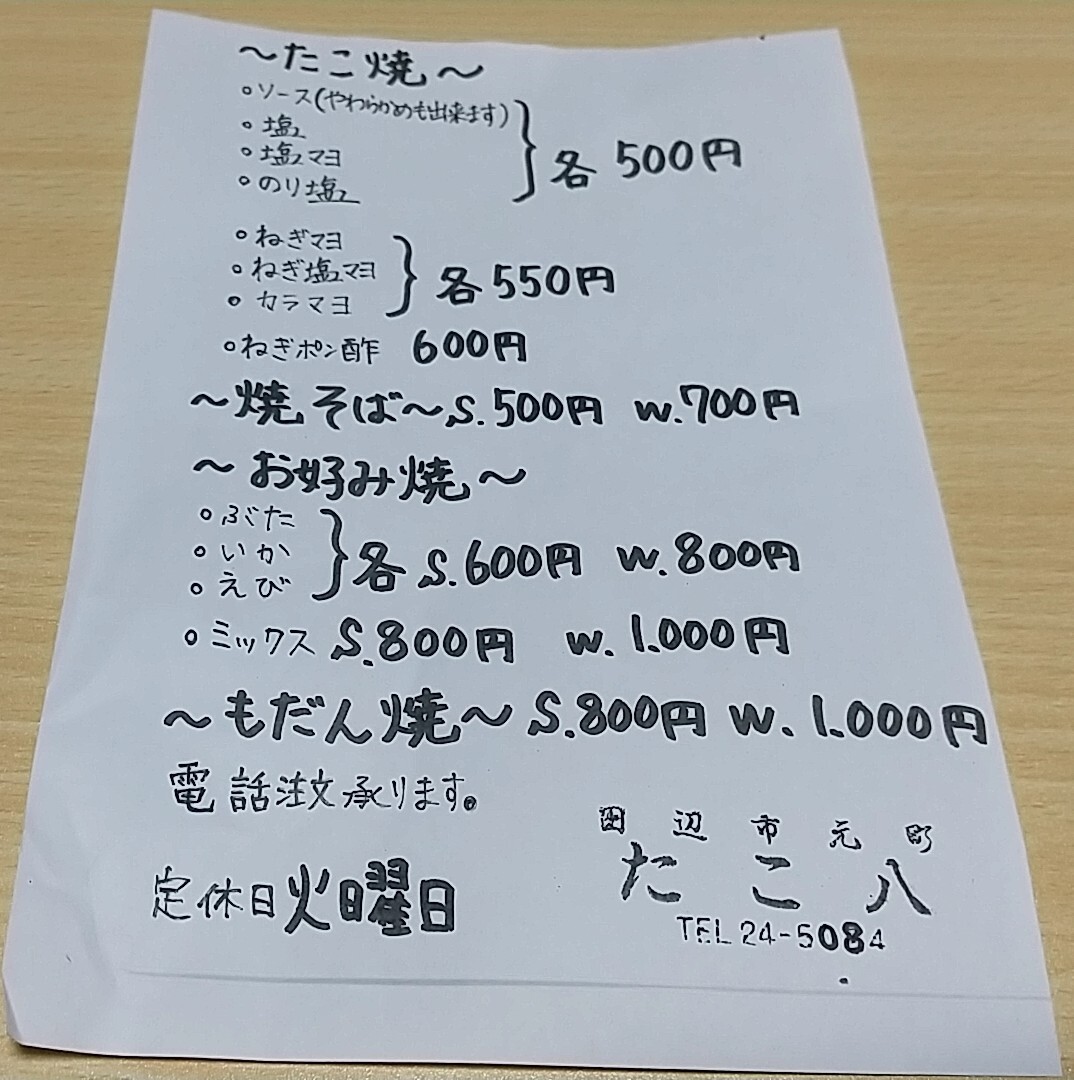 ～たこ焼～
○ソース(やわらかめも出来ます)
○塩
○塩マヨ
○のり塩
各500円
○ねぎマヨ
○ねぎ塩マヨ
○カラマヨ
各550円
○ねぎポン酢 600円
～焼そば～S.500円 W.700円
～お好み焼～
○ぶた
○いか
○えび
各S.600円 W.800円
○ミックス S.800円 W.1.000円
～もだん焼～S.800円 W.1.000円
電話注文承ります。
定休日火曜日
田辺市元町
たこ八
TEL24-5084